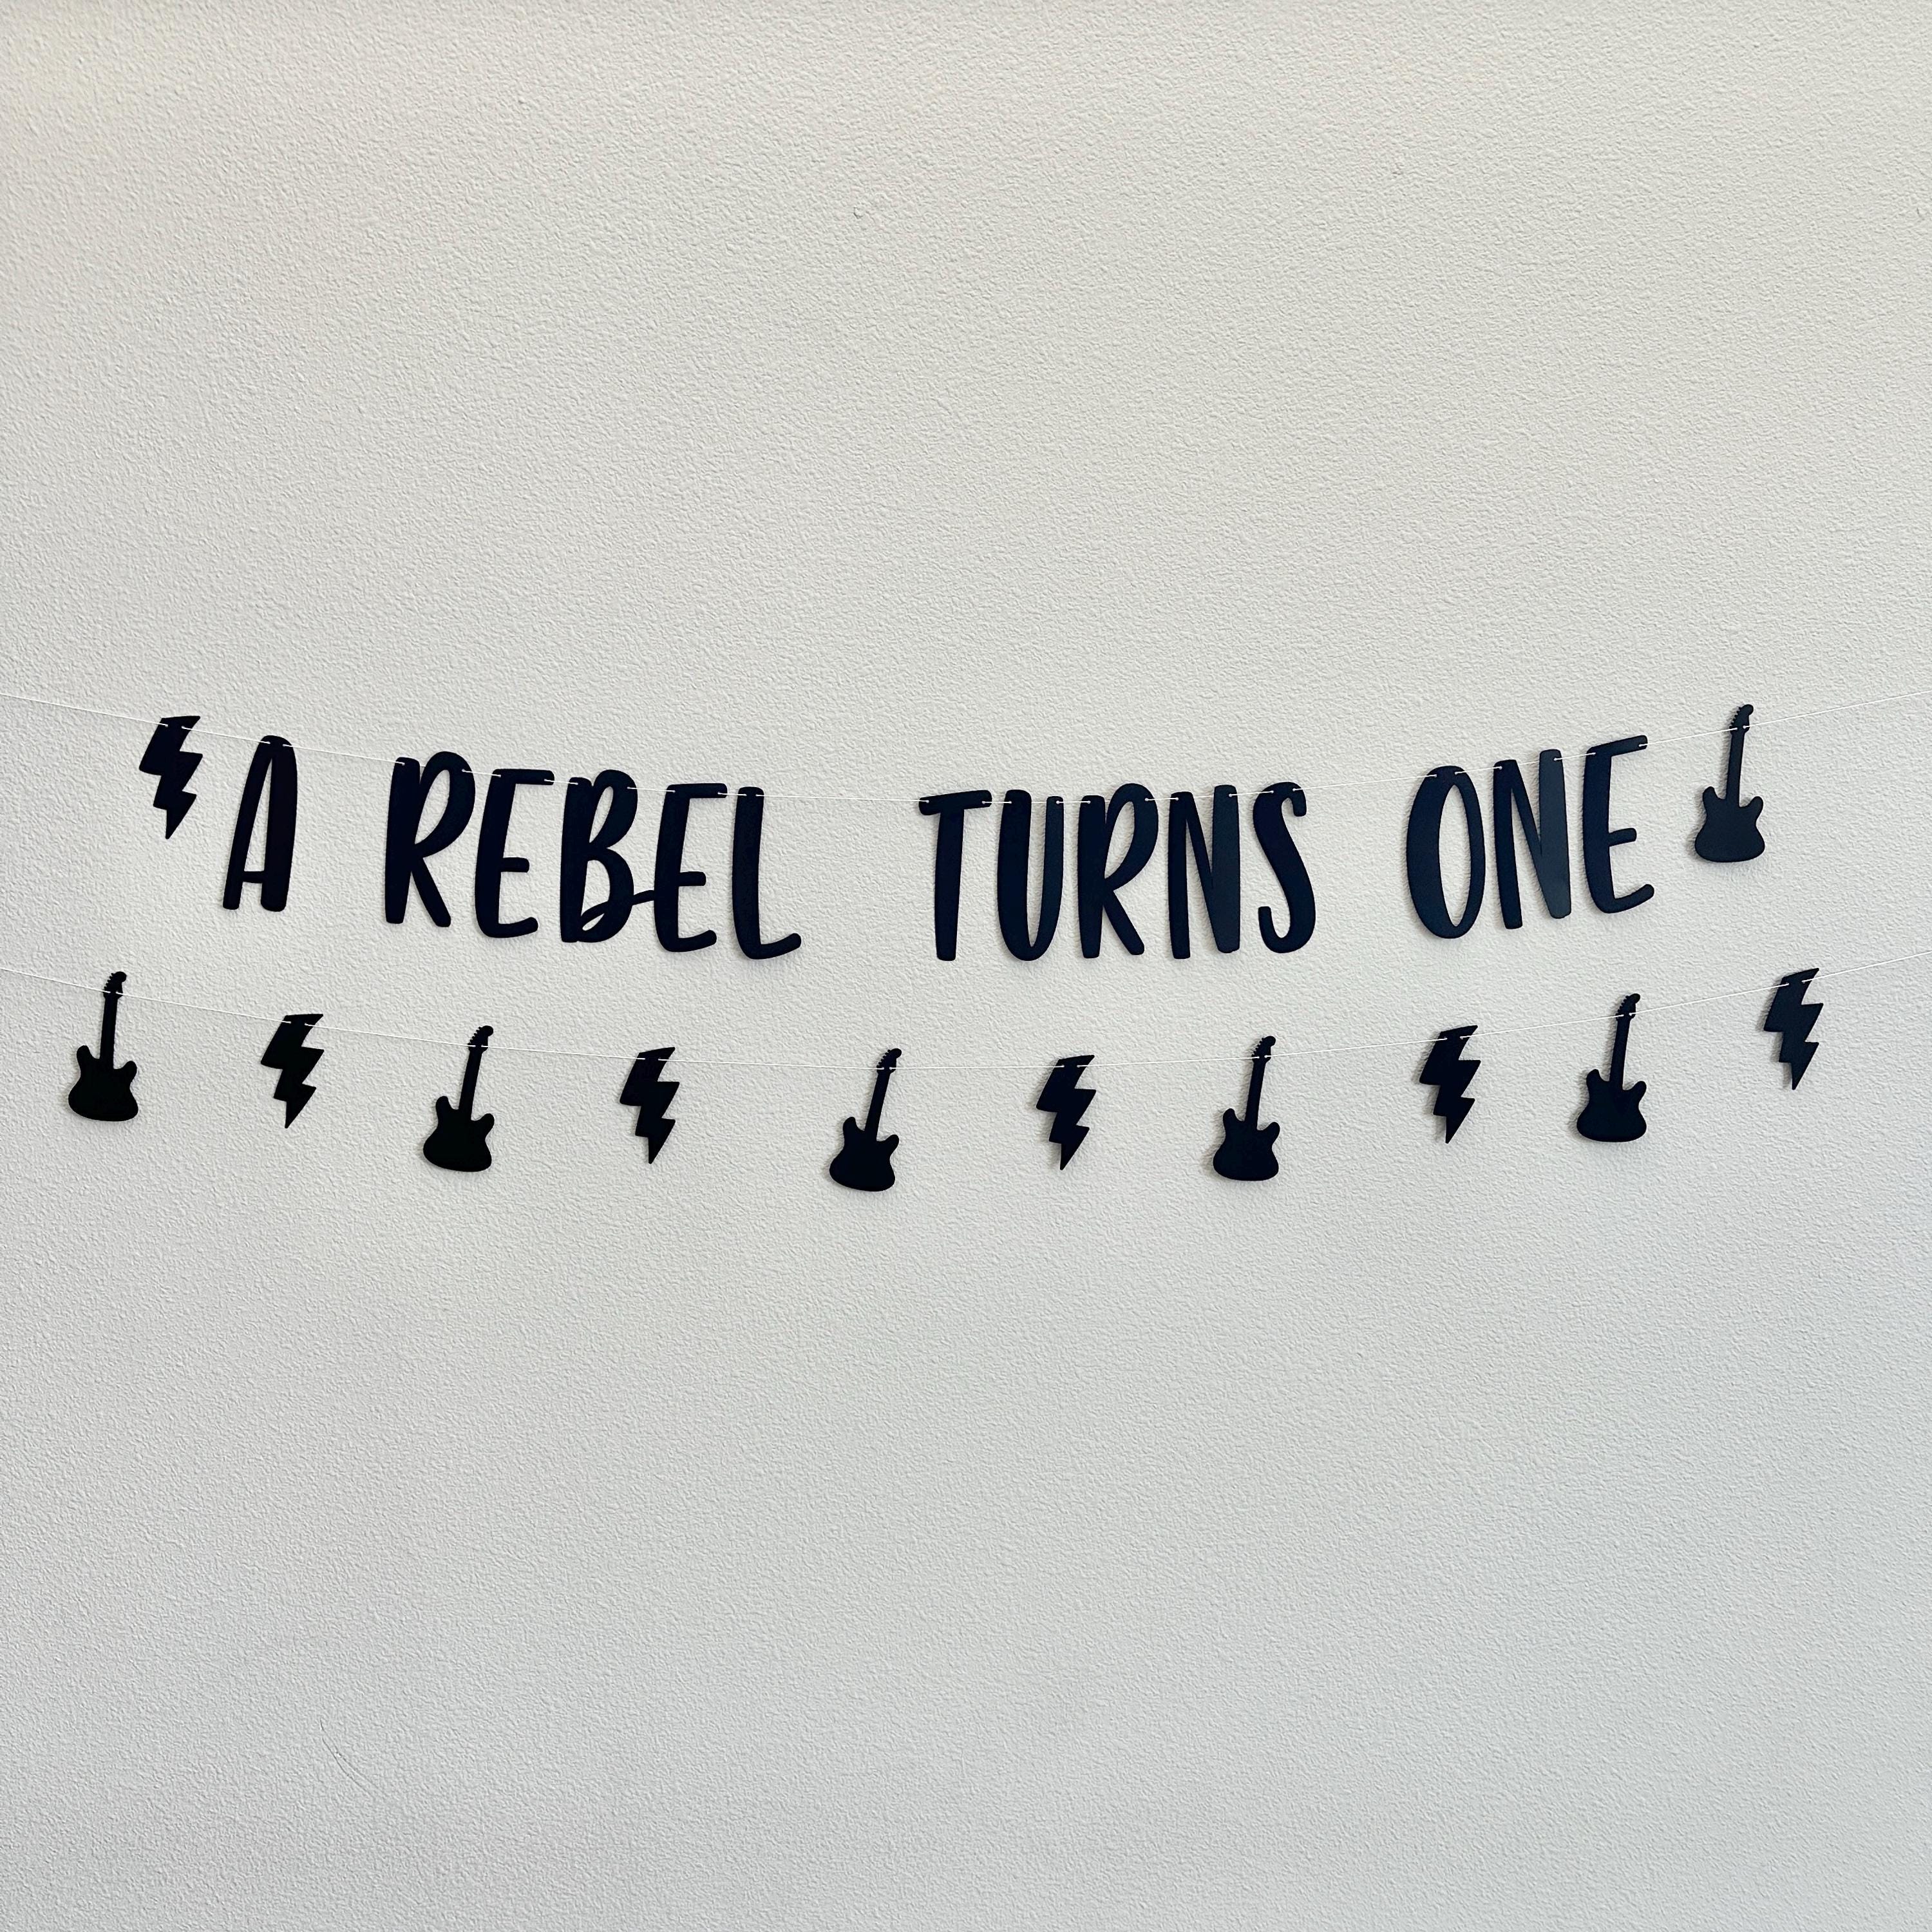 A REBEL TURNS ONE